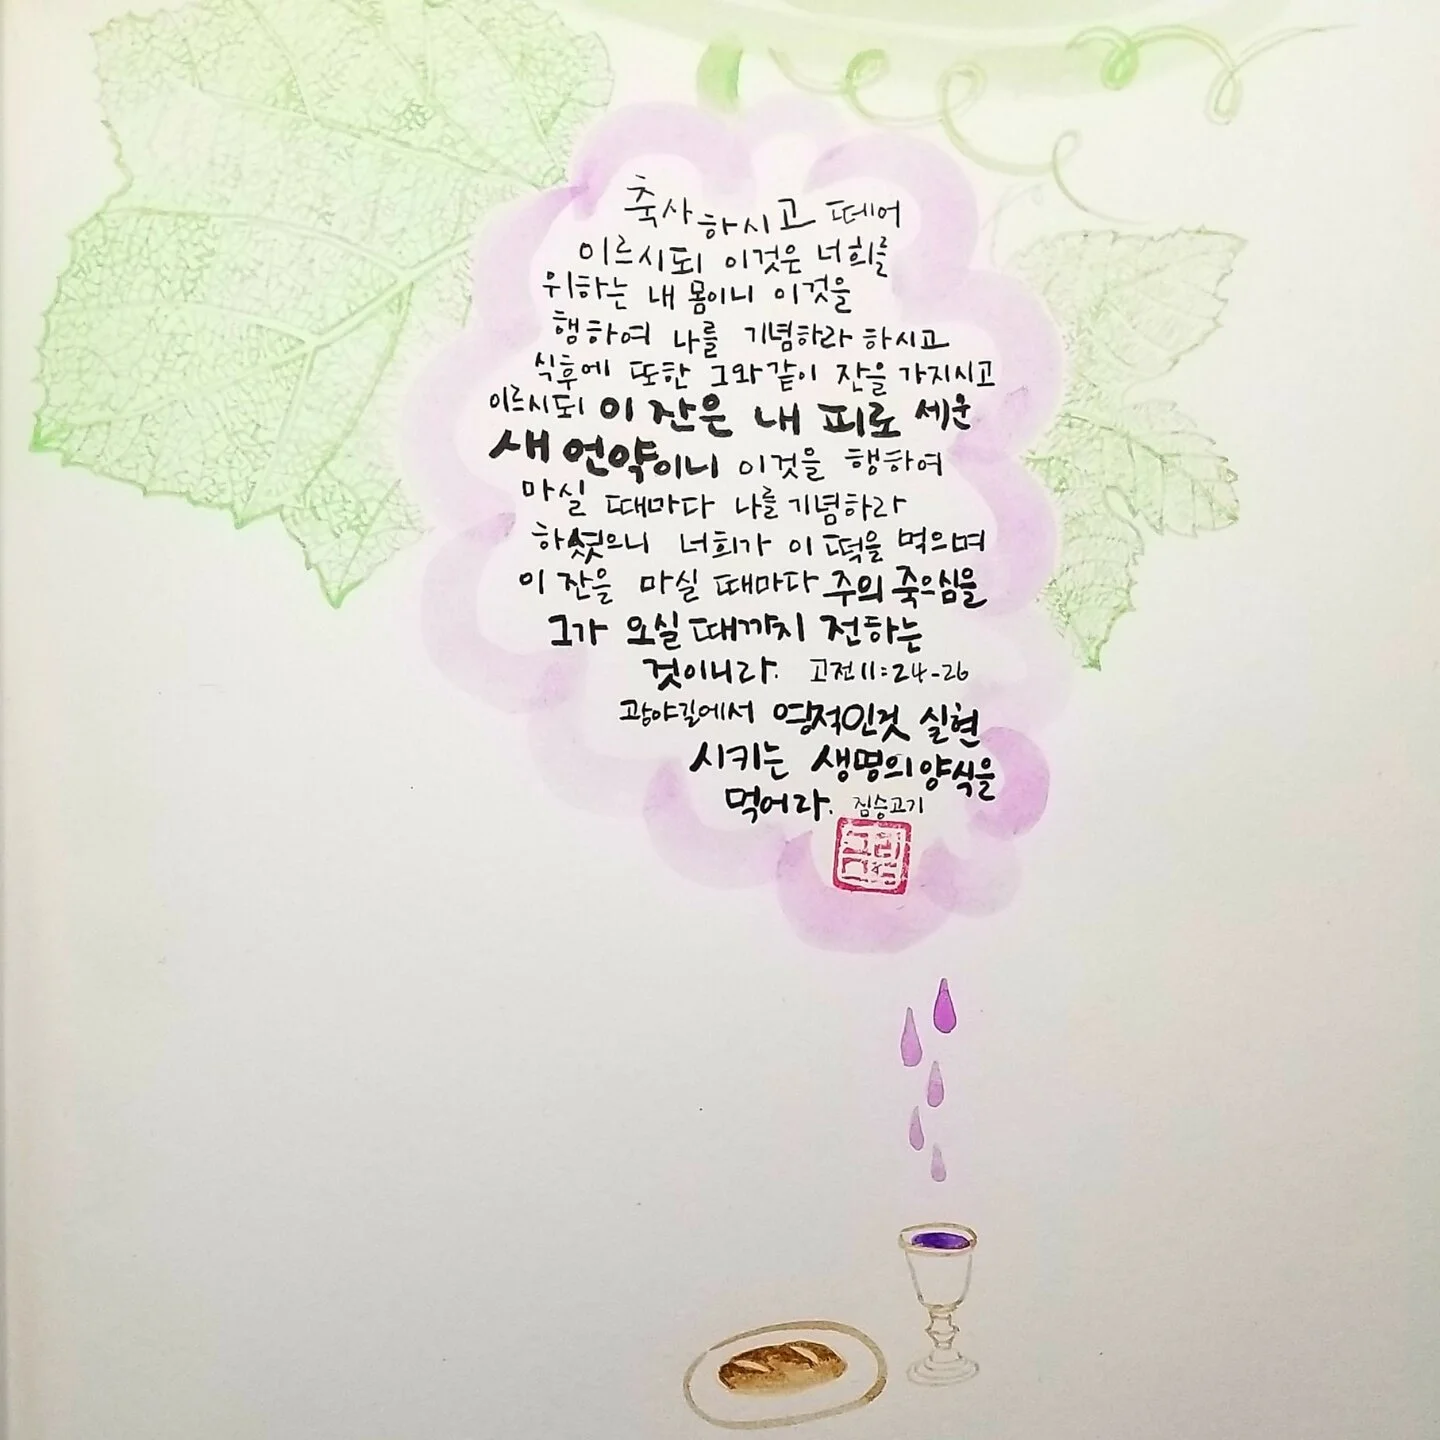 축사하시고 떼어
이르시되 이것은 너희를
위하는 내 몸이니 이것을
행하여 나를 기념하라 하시고
식후에 또한 그와같이 잔을 가지시고
이르시되 이 잔은 내 피로 세운
새 언약이니 이것을 행하여
마실 때마다 나를 기념하라
하셨으니 너희가 이 떡을 먹으며
이 잔을 마실 때마다 주의 죽으심을
그가 오실 때까지 전하는
것이니라. 고전 11:24-26
광야길에서 영적인것 실현
시키는 생명의 양식을
먹어라. 짐승고기